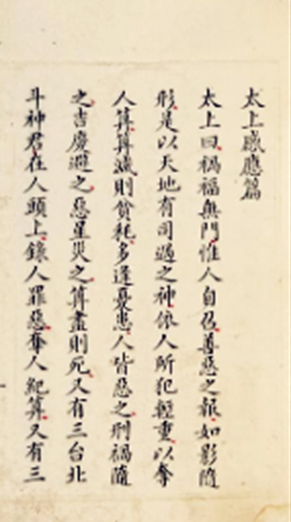 太上感應篇
太上曰禍福無門惟人自召善惡之報如影隨
形是以天地有司過之神依人所犯輕重以奪
人算算減則貧耗多逢憂患人皆惡之刑禍隨
之吉慶避之惡星災之算盡則死又有三台北
斗神君在人頭上錄人罪惡奪人紀算又有三